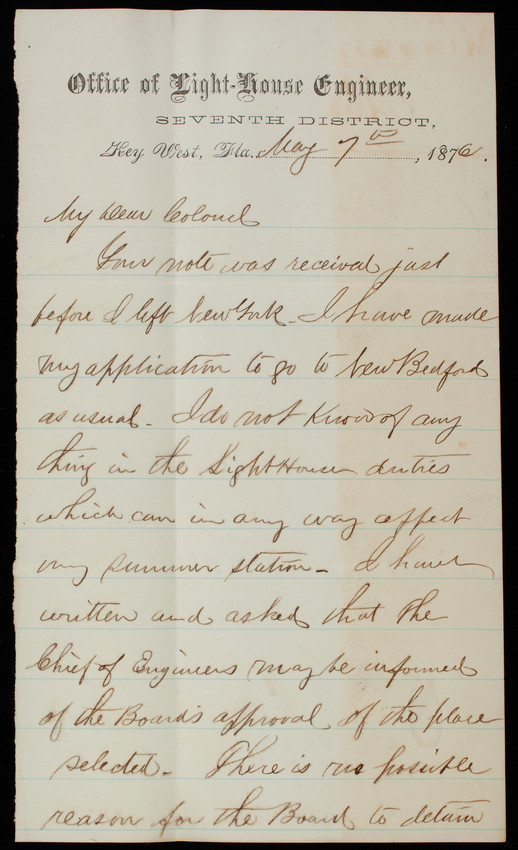 Office of Light-House Engineer,
SEVENTH DISTRICT,
Key West, Fla. May 7th, 1876.
My dear Colonel
Your note was received just
before I left New York. I have made
my application to go to New Bedford
as usual. I do not know of any
thing in the Light House duties
which can in any way affect
my summer station. I have
written and asked that the
Chief of Engineers may be informed
of the Board's approval of the place
selected. There is no possible
reason for the Board to detain